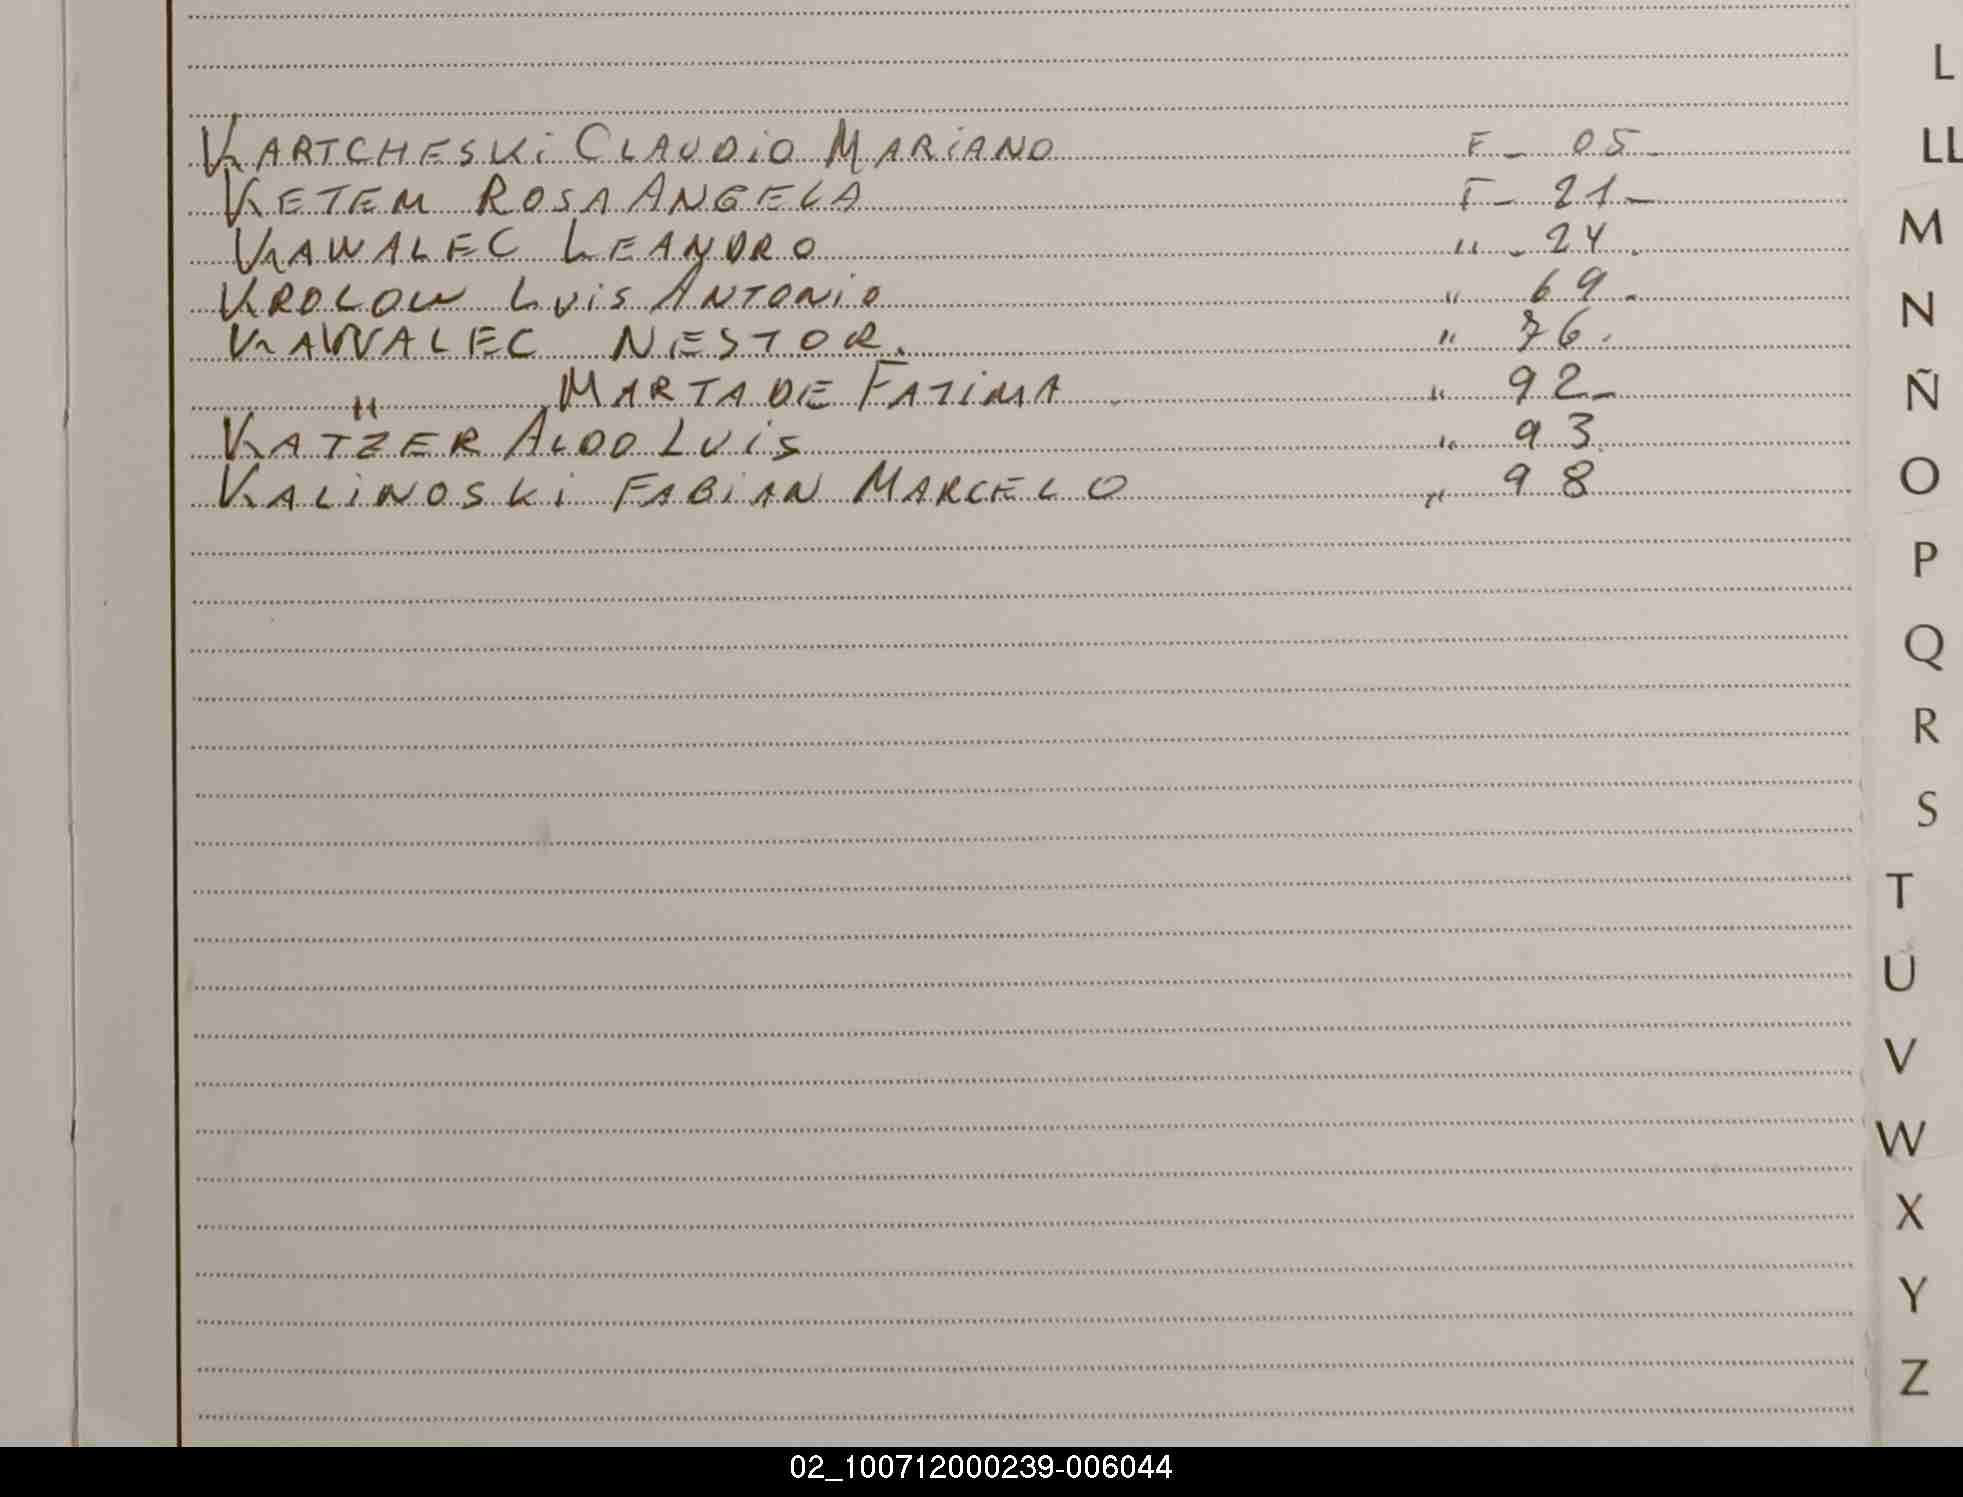 KARTCHESKi CLAUDiO MARiANO F - 05 -
KETEM ROSA ANGELA F - 21 -
KAWALEC LEANDRO " - 24 .
KROLOW LUiS ANTONiO " 69 .
KAWALEC NESTOR. " 76 .
" MARTA DE FATiMA " 92 -
KATZER ALDO LUiS " 93
KALiNOSKi FABiAN MARCELO " 98
L
LL
M
N
Ñ
O
P
Q
R
S
T
U
V
W
X
Y
Z
02_100712000239-006044